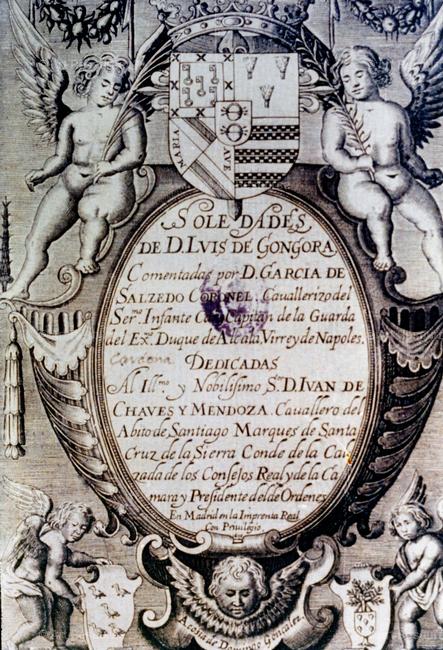 MARIA
AVE
SOLEDADES
DE D. LVIS DE GONGORA
Comentadas por D. GARCIA DE
SALZEDO CORONEL. Cauallerizo del
Ser.mo Infante Car.l Capitan de la Guarda
del Ex.mo Duque de Alcala, Virrey de Napoles.
Cardona
DEDICADAS
Al Ill.mo y Nobilisimo S.r D. IVAN DE
CHAVES Y MENDOZA. Cauallero del
Abito de Santiago Marques de Santa
Cruz de la Sierra Conde de la Cal
zada de los Consejos Real y de la Ca
mara y Presidente del de Ordenes
En Madrid en la Imprenta Real
Con Priuilegio.
A costa de Domingo Gonçalez.